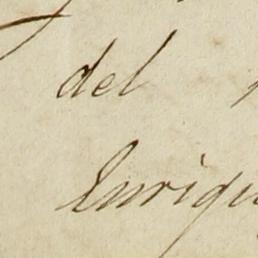 del
Enriqu